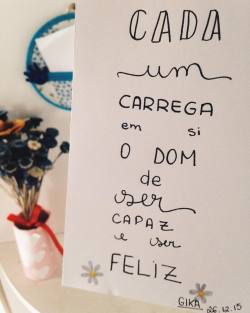 CADA
um
CARREGA
em si
O DOM
de
ser
CAPAZ
e ser
FELIZ
GIKA
26.12.15